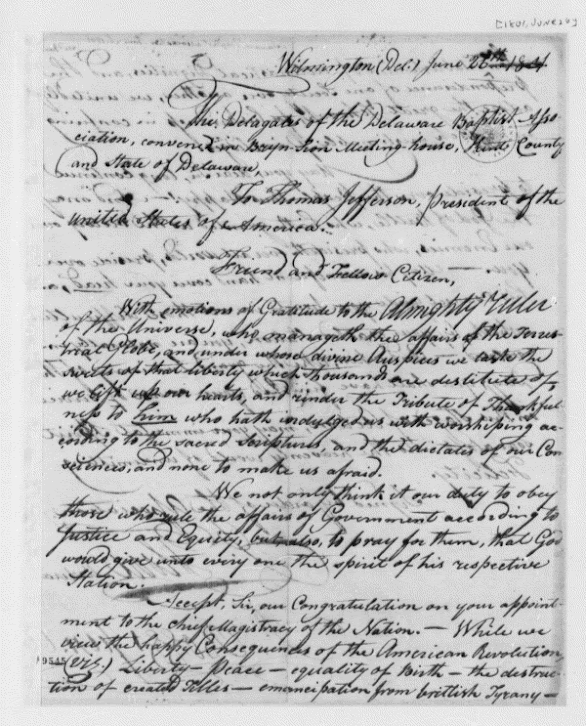 [1801, JUNE 26]
Wilmington (Del:) June 26th 1801
The Delagates of the Delaware Baptist Asso
ciation, convened in Bryn-Sion Meeting-house, Kent County
and State of Delaware,
To Thomas Jefferson, president of the
United States of America:
Friend and Fellow Citizen,
With emotions of Gratitude to the Almighty Ruler
of the Universe, who manageth the affairs of the Terres
trial Globe, and under whose divine Auspices we taste the
sweets of that liberty which thousands are destitute of,
we lift up our hearts, and render the Tribute of Thankful
ness to him who hath indulged us with worshiping ac-
cording to the sacred Scriptures, and the dictates of our Con
sciences, and none to make us afraid.
We not only think it our duty to obey
those who rule the affairs of Government according to
Justice and Equity, but also, to pray for them, that God
would give unto every one the spirit of his respective
Station.
Accept, Sir, our Congratulation on your appoint-
ment to the chief Magistracy of the Nation. — While we
view the happy Consequences of the American Revolution,
(Viz.) Liberty — Peace — equality of Birth — the destruc-
tion of created Titles — emancipation from brittish Tyrany —